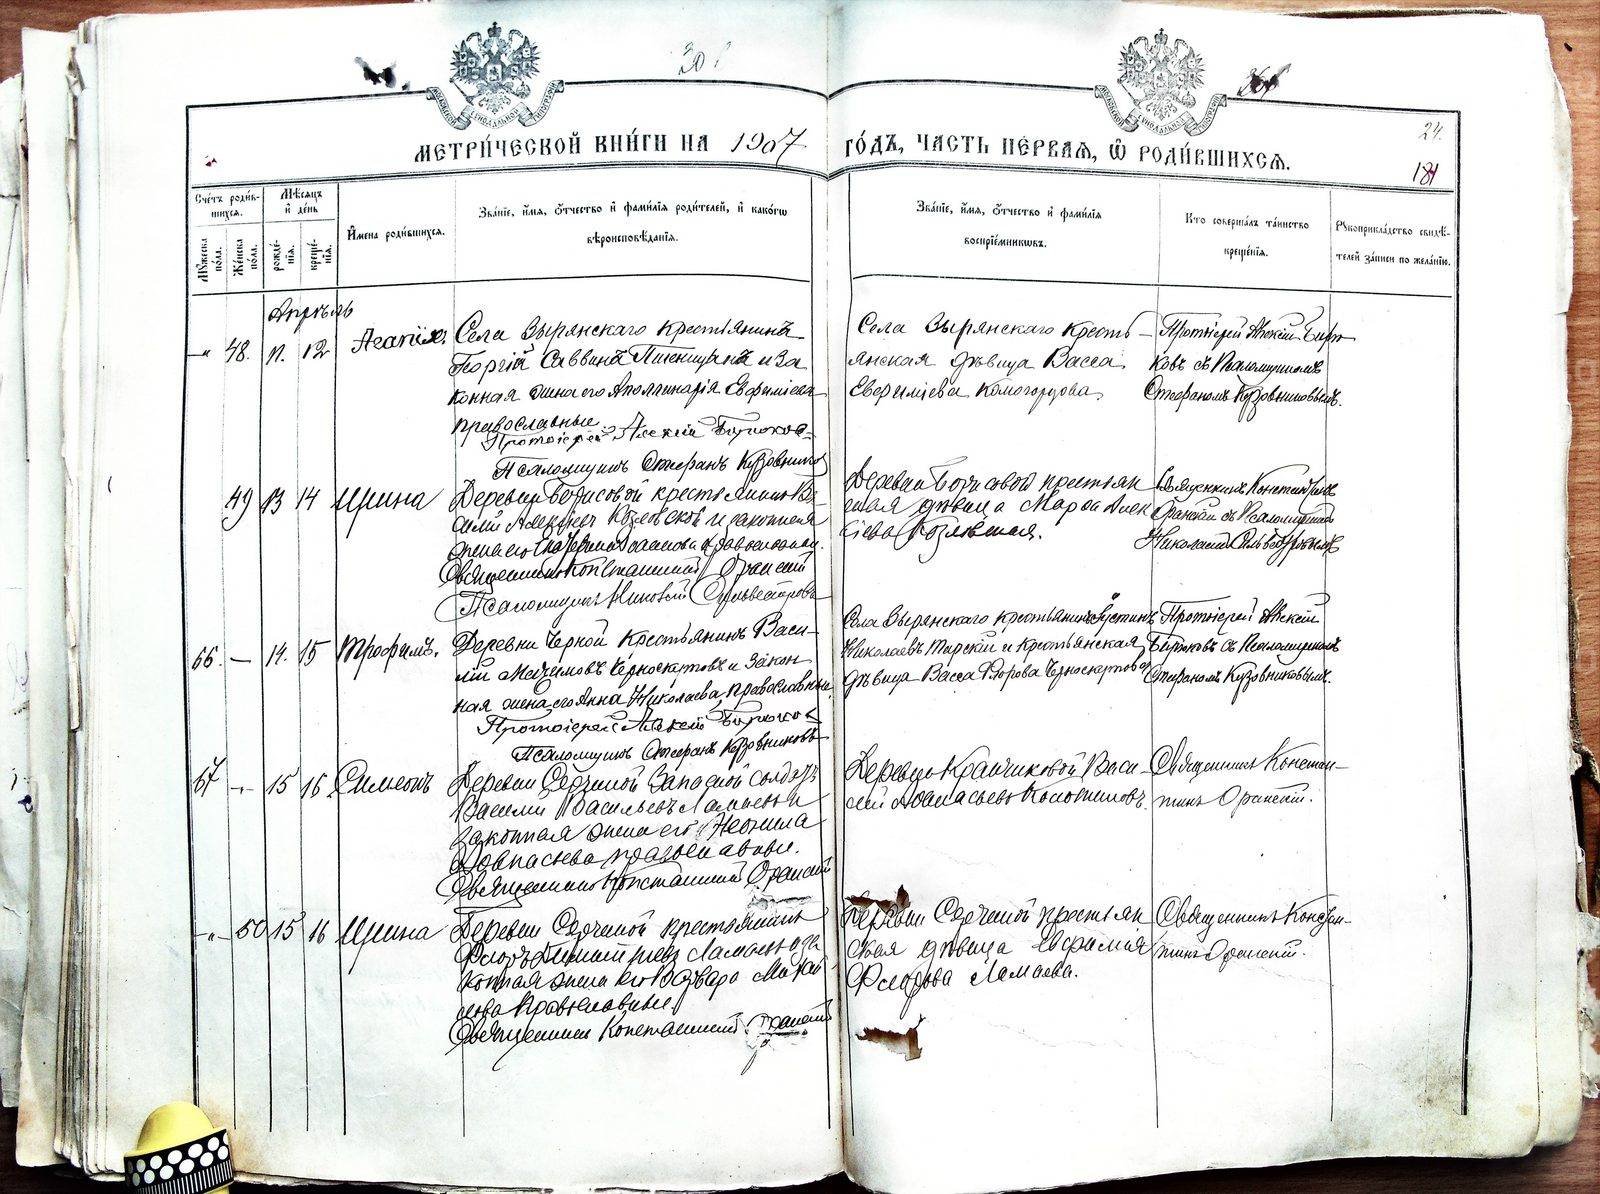 301
МЕТРИ́ЧЕСКОЙ КНИ́ГИ НА 1907 ГО́ДЪ, ЧАСТЬ ПЕ́РВАЯ, Ѡ҆ РОДИ́ВШИХСЯ.
24.
181
Сче́тъ роди́в-
шихся.
Мѣ́сяцъ
и҆ де́нь
Му́жеска по́ла.
Же́нска по́ла.
рожде́-
нія.
креще́-
нія.
И҆мена̀ роди́вшихся.
Зва́ніе, и҆́мя, ѻ҆́тчество и҆ фами́лія роди́телей, и҆ како́гѡ
вѣроисповѣ́данія.
Зва́ніе, и҆́мя, ѻ҆́тчество и҆ фами́лія
воспріе́мникѡвъ.
Кто̀ соверша́лъ та́инство
креще́нія.
Рꙋкоприкла́дство свидѣ́-
телей за́писи по жела́нію.
Апрѣль
48. 11. 12 Агапія.
Села Зырянскаго крестьянинъ
Георгій Саввинъ и за
конная жена его Аполлинарія Евфиміева
православные
Протоіерей Алексій Бирюков
Псаломщикъ Стефанъ Кузовников
Села Зырянскаго кресть-
янская дѣвица Васса
Евфиміева Комогорцова
Протоіерей Алексій Бирю
ковъ съ Псаломщикомъ
Стефаномъ Кузовниковымъ.
49 13 14 Ирина
Деревни Борисовой крестьянинъ Ва
силій Алексѣевъ Козловской и законная
жена его Екатерина православные.
Священникъ Константинъ Оранскій
Псаломщикъ Николай Сильвестровъ
Деревни Борисовой крестьян
ская дѣвица Марѳа Алек
сѣева Козловская.
Священникъ Константинъ
Оранскій съ Псаломщикомъ
Николаемъ Сильвестровымъ
66. — 14. 15 Трофимъ.
Деревни Черной крестьянинъ Васи-
лій Черноскутовъ и закон
ная жена его Анна Николаева, православные.
Протоіерей Алексій Бирюков
Псаломщикъ Стефанъ Кузовниковъ
Села Зырянскаго крестьянинъ Іустинъ
Николаевъ Тарскій и крестьянская
дѣвица Васса Флорова Черноскутова
Протоіерей Алексій
Бирюковъ съ Псаломщикомъ
Стефаномъ Кузовниковымъ.
67 15 16 Симеонъ
Деревни запасной солдатъ
Василій Васильевъ и
законная жена его Неонила
православные.
Священникъ Константинъ Оранскій
Деревни Васи-
лій Аѳанасьевъ
Священникъ Констан-
тинъ Оранскій.
50 15 16 Ирина
Деревни крестьянинъ
Флоръ Димитріевъ и за
конная жена его Варвара Михай
лова православные
Священникъ Константинъ Оранскій
Деревни крестьян
ская дѣвица Евфимія
Флорова Ламаева.
Священникъ Констан-
тинъ Оранскій.